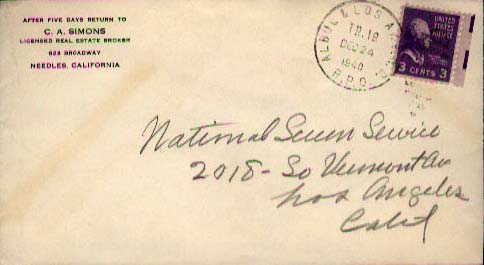 AFTER FIVE DAYS RETURN TO
C. A. SIMONS
LICENSED REAL ESTATE BROKER
823 BROADWAY
NEEDLES, CALIFORNIA
ALBUQ & LOS ANG
TR. 19
DEC 24
1940
R.P.O.
UNITED
STATES
3 CENTS 3
National Screen Service
2018 - So Vermont Av
Los Angeles
Calif